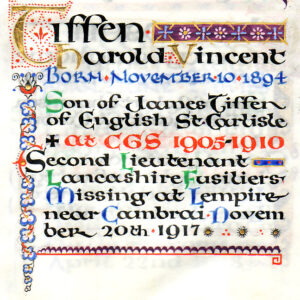 Tiffen
Harold Vincent
Born November 10 1894
Son of James Tiffen
of English St Carlisle
at CGS 1905-1910
Second Lieutenant
Lancashire Fusiliers
Missing at Lempire
near Cambrai Novem
ber 20th 1917